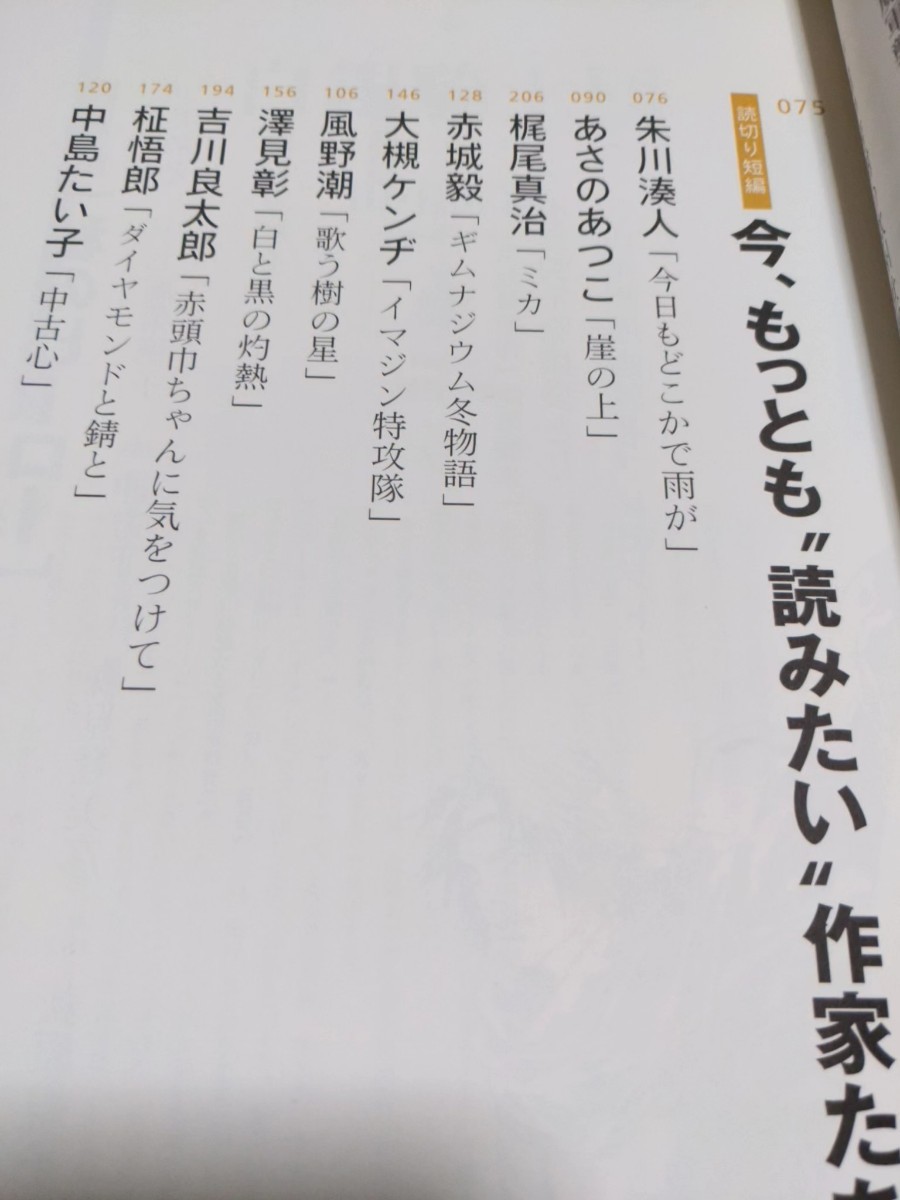 075
読切り短編
今、もっとも〝読みたい〟作家た
076
朱川湊人「今日もどこかで雨が」
090
あさのあつこ「崖の上」
206
梶尾真治「ミカ」
128
赤城毅「ギムナジウム冬物語」
146
大槻ケンヂ「イマジン特攻隊」
106
風野潮「歌う樹の星」
156
澤見彰「白と黒の灼熱」
194
吉川良太郎「赤頭巾ちゃんに気をつけて」
174
柾悟郎「ダイヤモンドと錆と」
120
中島たい子「中古心」